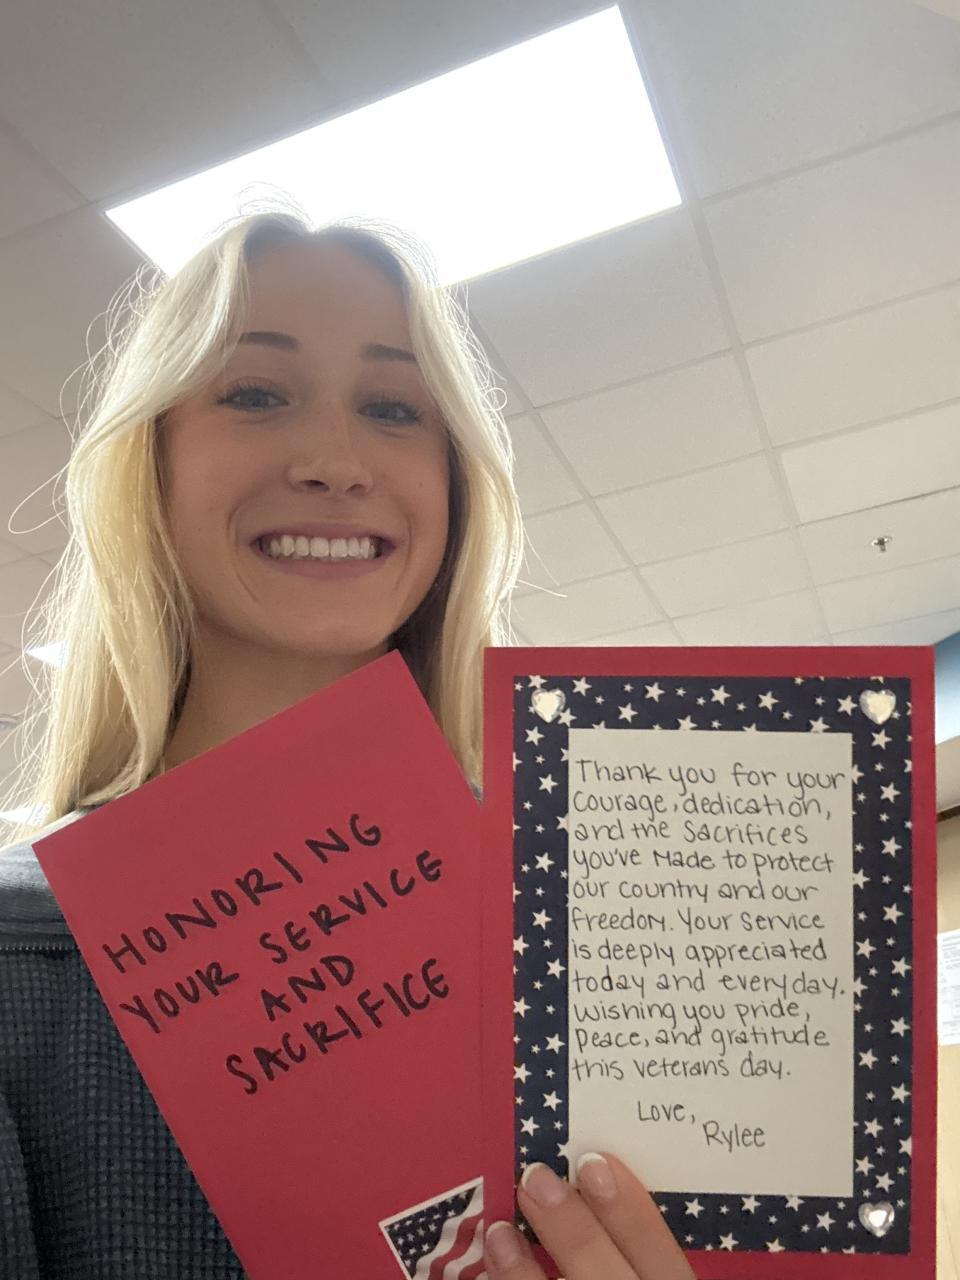 HONORING
YOUR SERVICE
AND
SACRIFICE
Thank you for your
Courage, dedication,
and the sacrifices
you've made to protect
our country and our
freedom. Your service
is deeply appreciated
today and everyday.
Wishing you pride,
peace, and gratitude
this veterans day.
Love,
Rylee